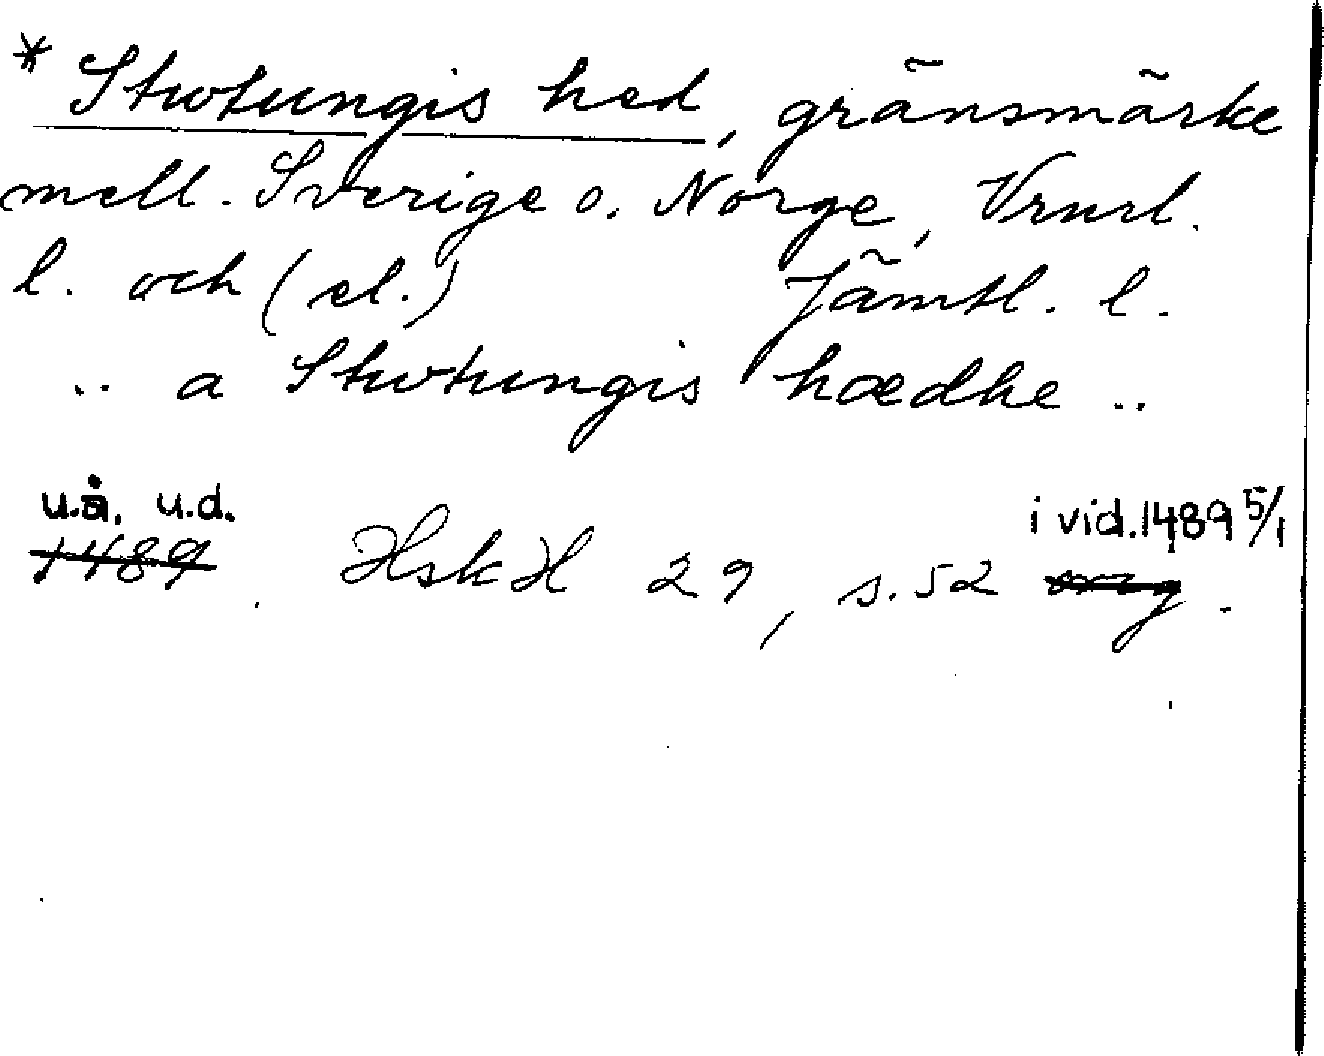 * Stwtungis hed, gränsmärke
mell. Sverige o. Norge, Vrml.
l. och (el.) Jämtl. l.
.. a Stwtungis hædhe ..
u.å. u.d. i vid. 1489 5/1
1489. HskH 29, s. 52 orig.